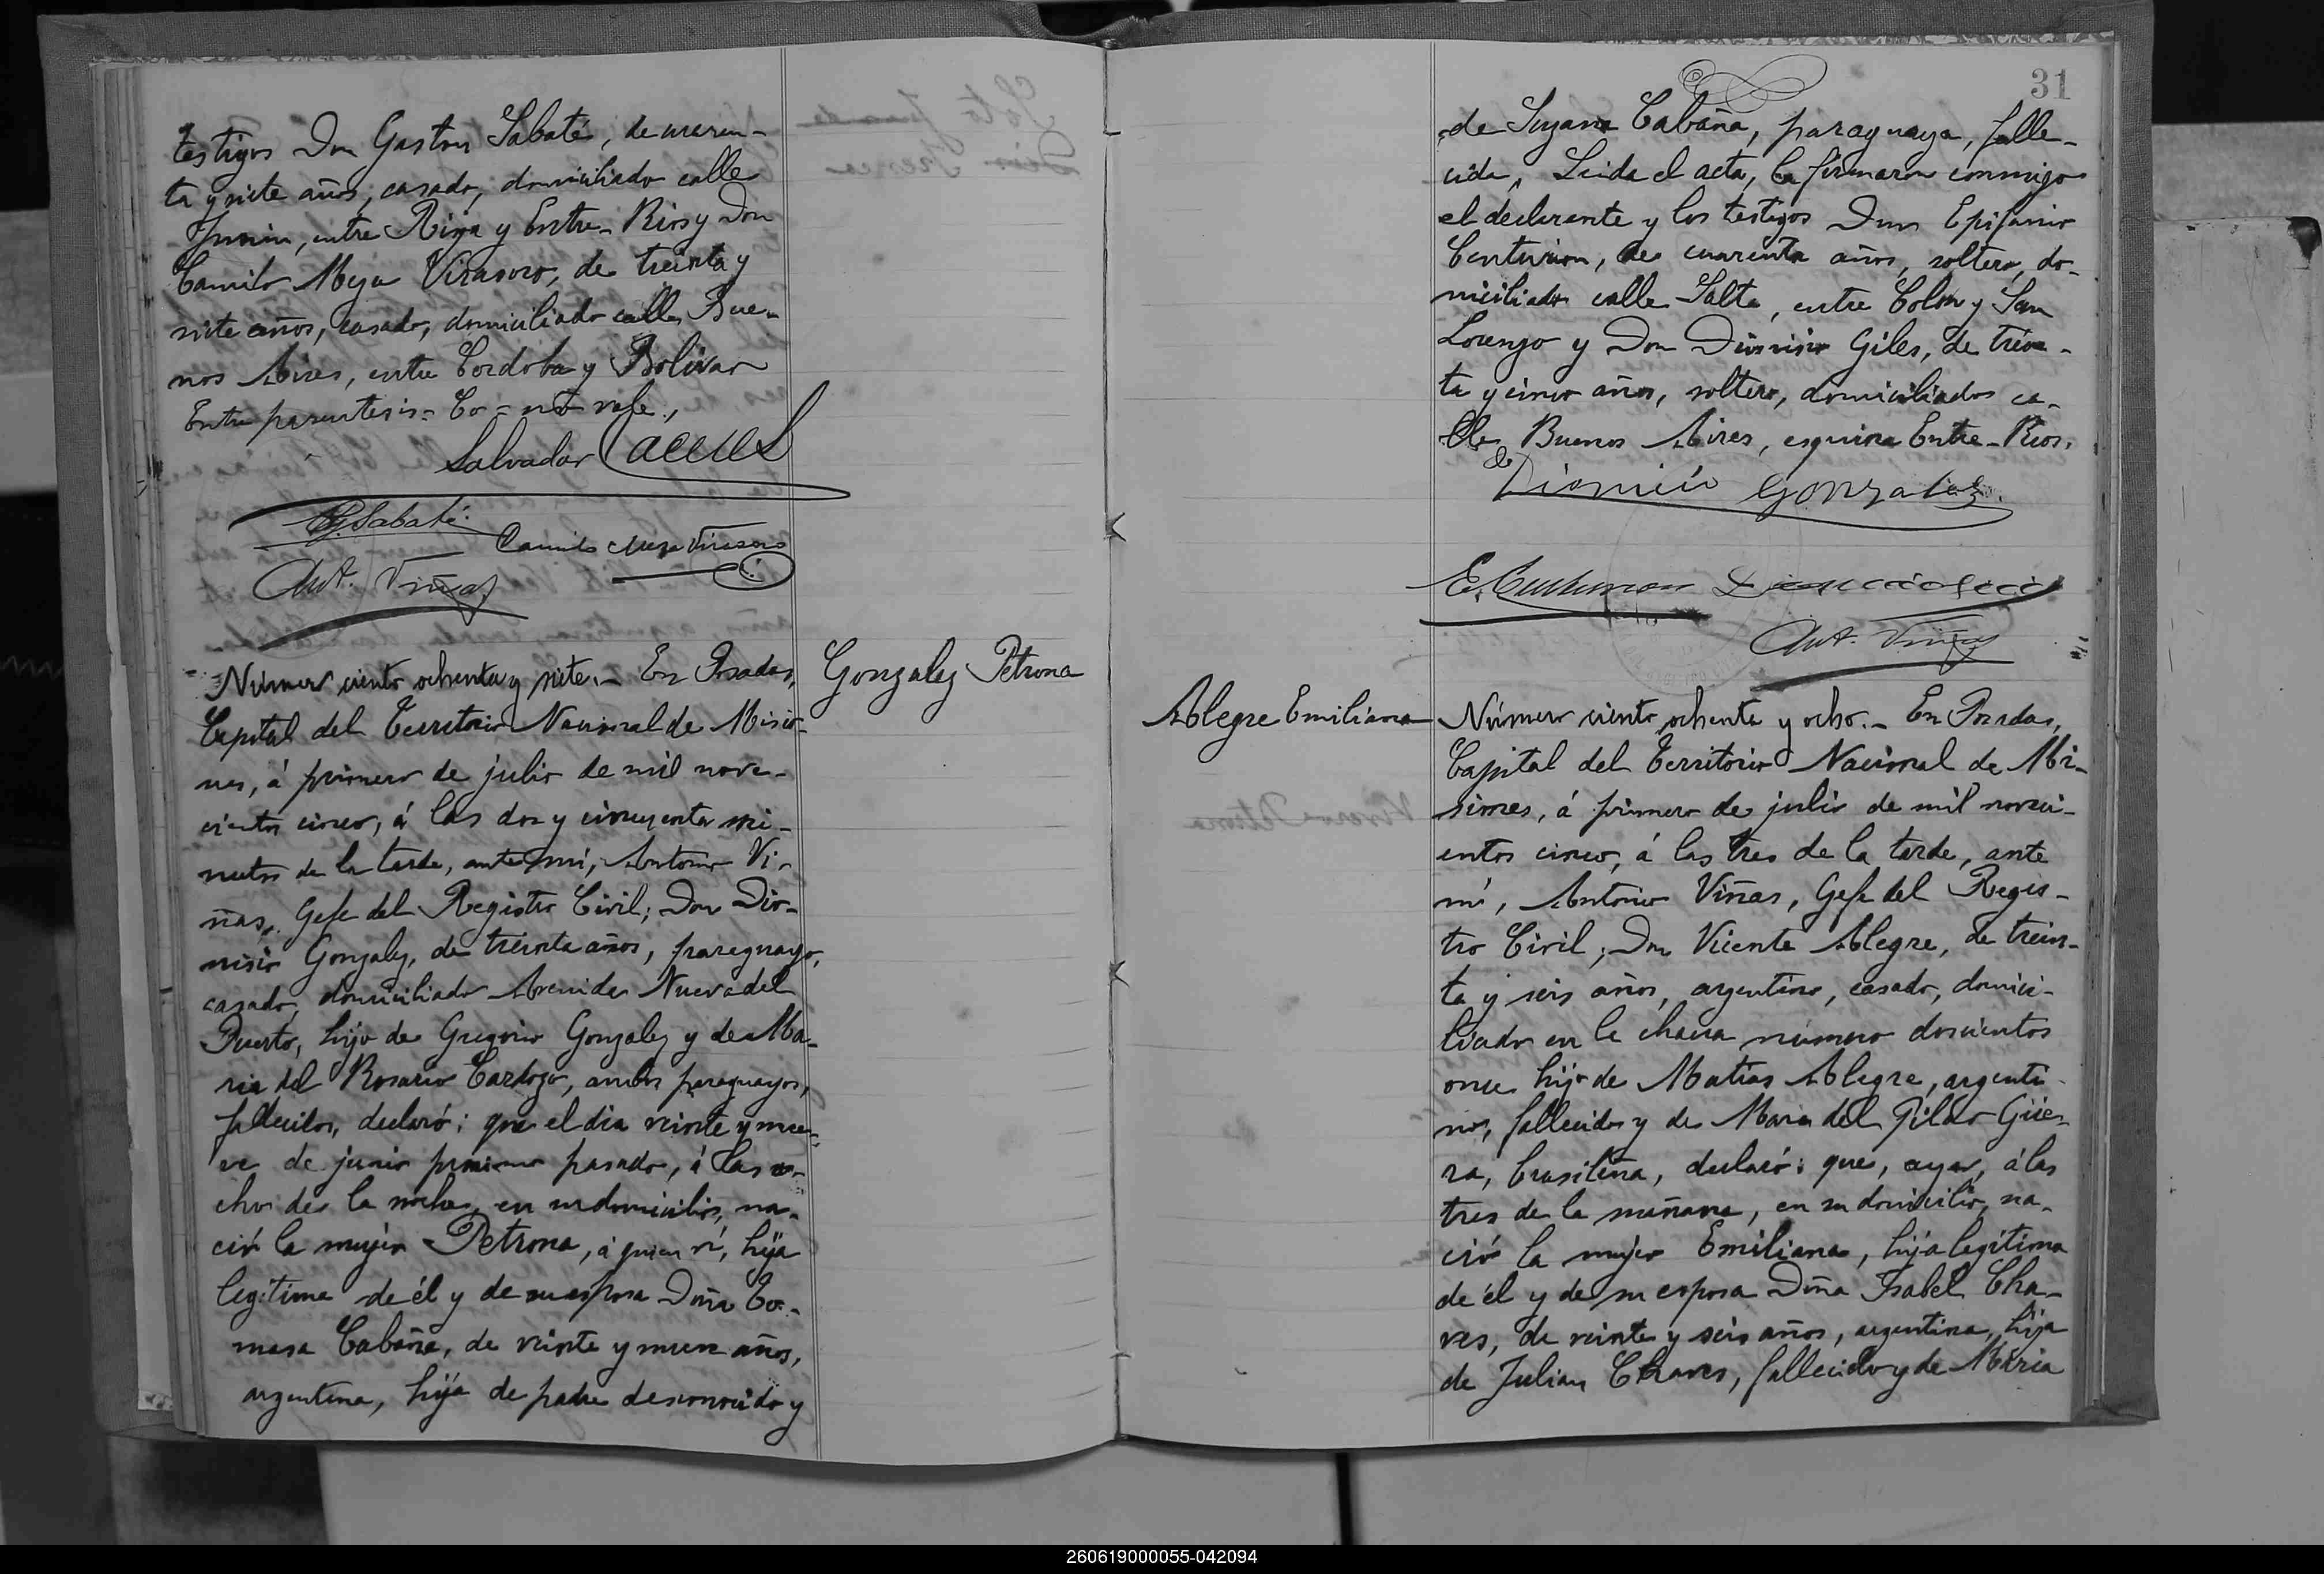 testigos Don Gaston Sabaté, de cuaren-
ta y siete años, casado, domiciliado calle
Junin, entre Rioja y Entre-Rios y Don
Camilo Meza Virasoro, de treinta y
siete años, casado, domiciliado calle Bue-
nos Aires, entre Cordoba y Bolivar
Entre parentesis = Co = no vale.,
Salvador
G. Sabaté.
Camilo Meza Virasoro
Ant. Viñas
Gonzalez Petrona
Número ciento ochenta y siete.- En Posadas,
Capital del Territorio Nacional de Misio-
nes, á primero de julio de mil nove-
cientos cinco, á las dos y cincuenta mi-
nutos de la tarde, ante mí, Antonio Vi-
ñas, Gefe del Registro Civil; Don Dio-
nisio Gonzalez, de treinta años, paraguayo,
casado, domiciliado Avenida Nueva del
Puerto, hijo de Gregorio Gonzalez y de Ma-
ria del Rosario Cardozo, ambos paraguayos,
fallecidos, declaró: que el dia veinte y nue-
ve de junio proximo pasado, á las o-
cho de la noche, en su domicilio, na-
ció la mujer Petrona, á quien ví, hija
legítima de él y de su esposa Doña To-
masa Cabaña, de veinte y nueve años,
argentina, hija de padre desconocido y
31
de Suzana Cabaña, paraguaya, falle-
cida, Leida el acta, la firmaron conmigo
el declarante y los testigos Don Epifanio
Centurion, de cuarenta años, soltero, do-
miciliado calle Salta, entre Colon y San
Lorenzo y Don Dionisio Giles, de trein-
ta y cinco años, soltero, domiciliados ca-
lle Buenos Aires, esquina Entre-Rios.
Dionicio Gonzalez.
E. Centurion
Ant. Viñas
Alegre Emiliana
Número ciento ochenta y ocho.- En Posadas,
Capital del Territorio Nacional de Mi-
siones, á primero de julio de mil noveci-
entos cinco, á las tres de la tarde, ante
mí, Antonio Viñas, Gefe del Regis-
tro Civil; Don Vicente Alegre, de trein-
ta y seis años, argentino, casado, domici-
liado en la chacra número doscientos
once hijo de Matías Alegre, argenti-
no, fallecido y de Maria del Pilar Güe-
ra, brasileña, declaró: que, ayer, á las
tres de la mañana, en su domicilio, na-
ció la mujer Emiliana, hija legítima
de él y de su esposa Doña Isabel Cha-
ves, de veinte y seis años, argentina, hija
de Julian Chaves, fallecido y de Maria
260619000055-042094